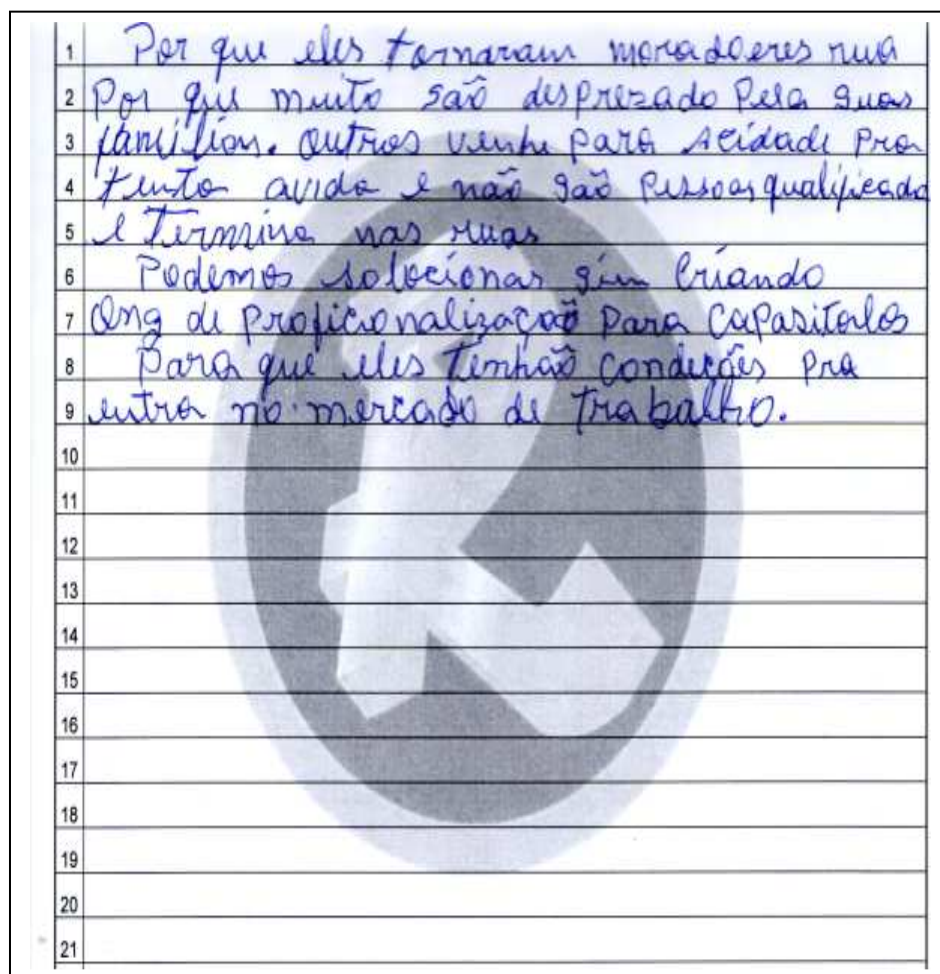 1 Por que eles tornaram moradoeres rua
2 Por que muito são desprezado Pela suas
3 famílias. Outros venhe para acidade Pra
4 tenta avida e não são Pessoas qualificada
5 e Termina nas ruas
6 Podemos solocionar sim Criando
7 Ong de proficionalização para Capasitalos
8 Para que eles tenhão condeções pra
9 entra no mercado de Trabalho.
10
11
12
13
14
15
16
17
18
19
20
21